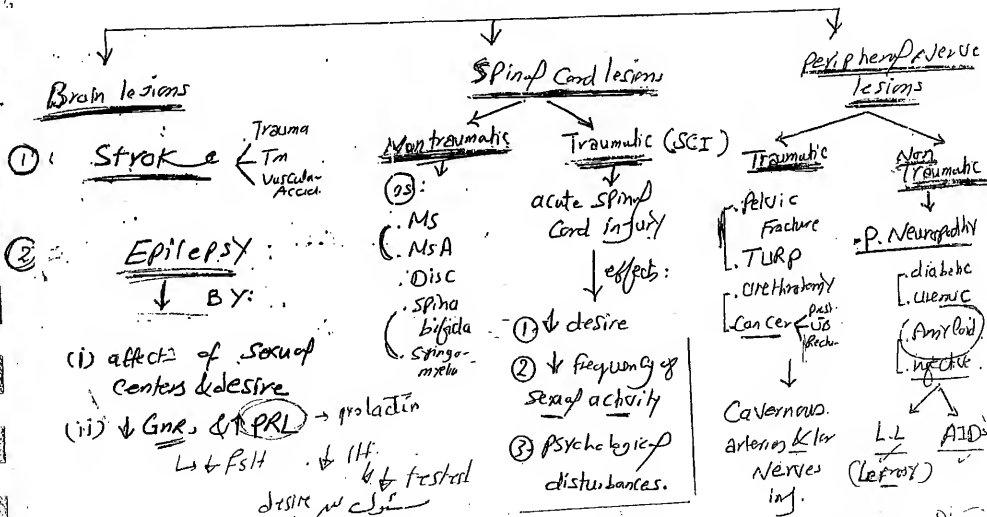 Brain lesions
① : Stroke
Trauma
Tm
Vascular
Accid.
② Epilepsy :
BY:
(i) affects of sexual
centers & desire
(ii) ↓ GnR, & ↑ PRL → prolactin
↳ ↓ FSH ↓ LH
↓ testest
desire مسئول عن
Spinal Cord lesions
Nontraumatic
as:
. MS
. MSA
. Disc
. Spina
bifida
. Syringo-
myelia
Traumatic (SCI)
acute spinal
Cord injury
effects:
① ↓ desire
② ↓ frequency of
sexual activity
③ Psychological
disturbances.
Peripheral Nerve
lesions
Traumatic
. Pelvic
Fracture
. TURP
. urethrotomy
. Cancer
Prost.
UB
Rectu.
Cavernous
arteries &/or
Nerves
inj.
Non
Traumatic
. P. Neuropathy
. diabetic
. uremic
. Amyloid
. infective
L.L
(Leprosy)
AIDS